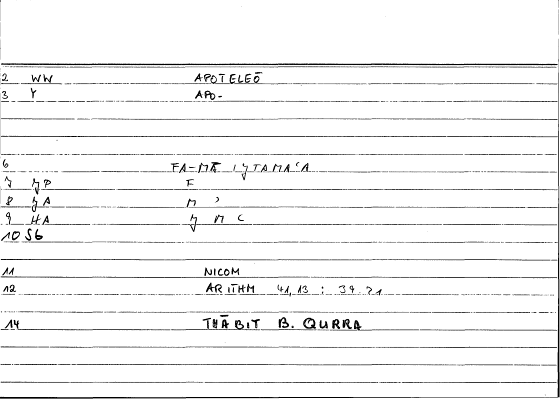 2 WW APOTELEŌ
3 Y APO-
6 FA-MĀ IȜTAMAʿA
7 ȜP F
8 ȜA M ʾ
9 HA Ȝ M C
10 S6
11 NICOM
12 ARITHM 41,13 : 39.21
14 THĀBIT B. QURRA